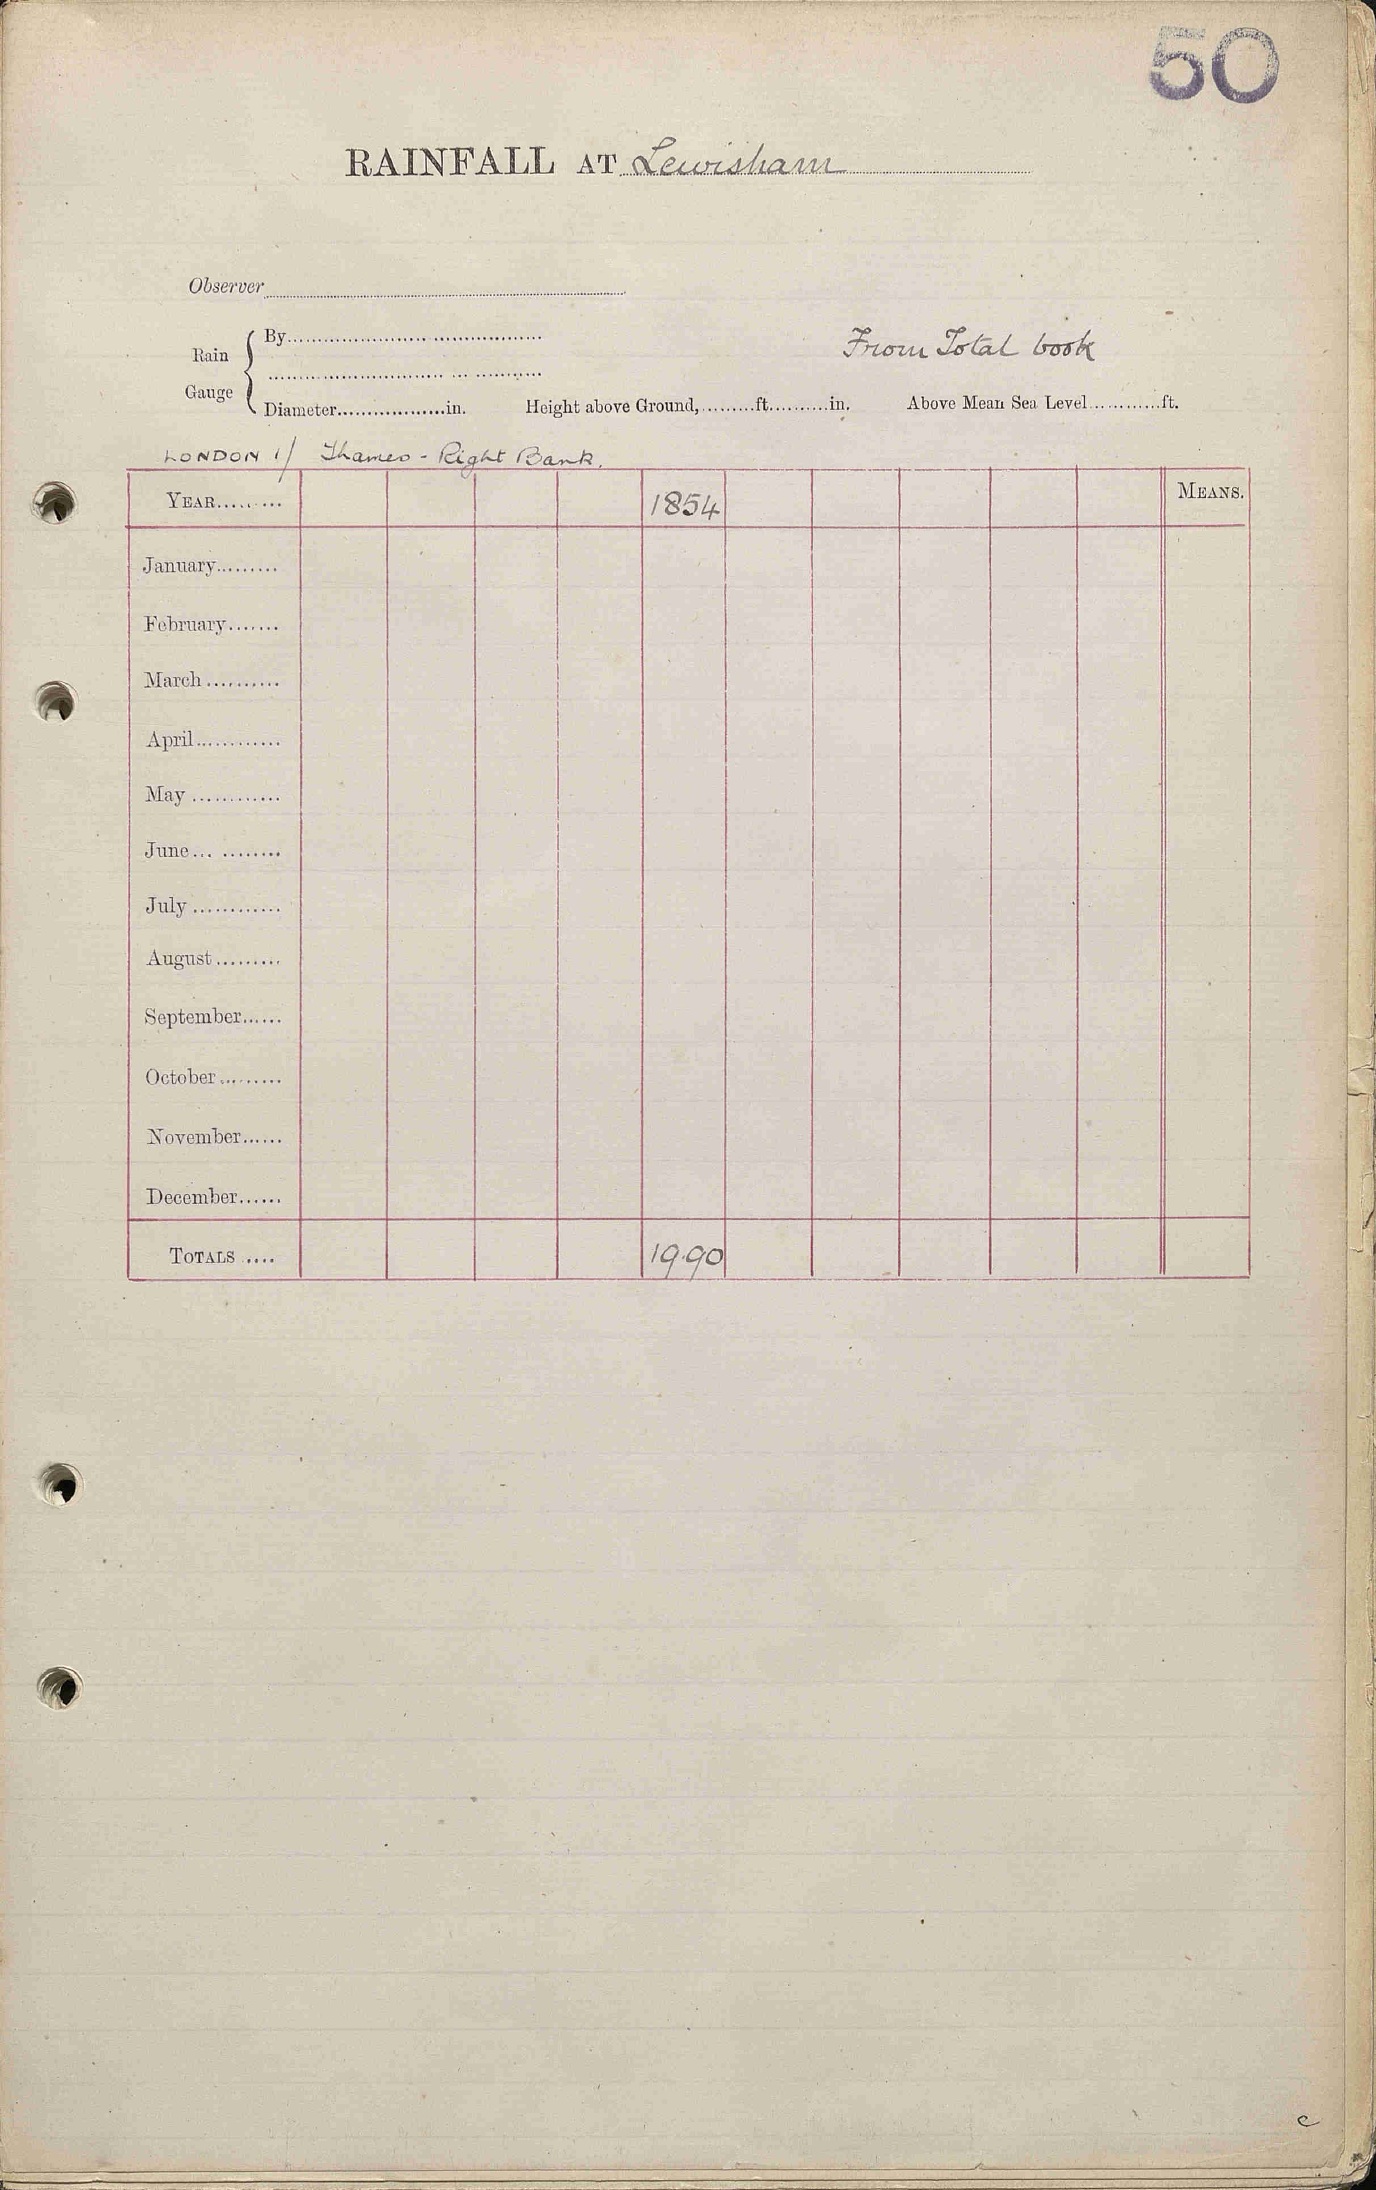 50
RAINFALL AT Lewisham
Observer
Rain Gauge { By
Diameter in. Height above Ground, ft. in. Above Mean Sea Level ft.
From Total book
LONDON 1/ Thames - Right Bank.
YEAR 1854 MEANS.
January
February
March
April
May
June
July
August
September
October
November
December
TOTALS 19.90
c